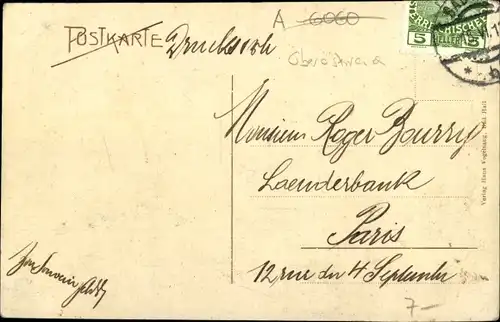 A 6060
POSTKARTE Drucksache
5 5
Monsieur Roger Bourry
Laenderbank
Paris
12, rue du 4 Septembre
Verlag Hans Vogelsang, Bad Hall
7-